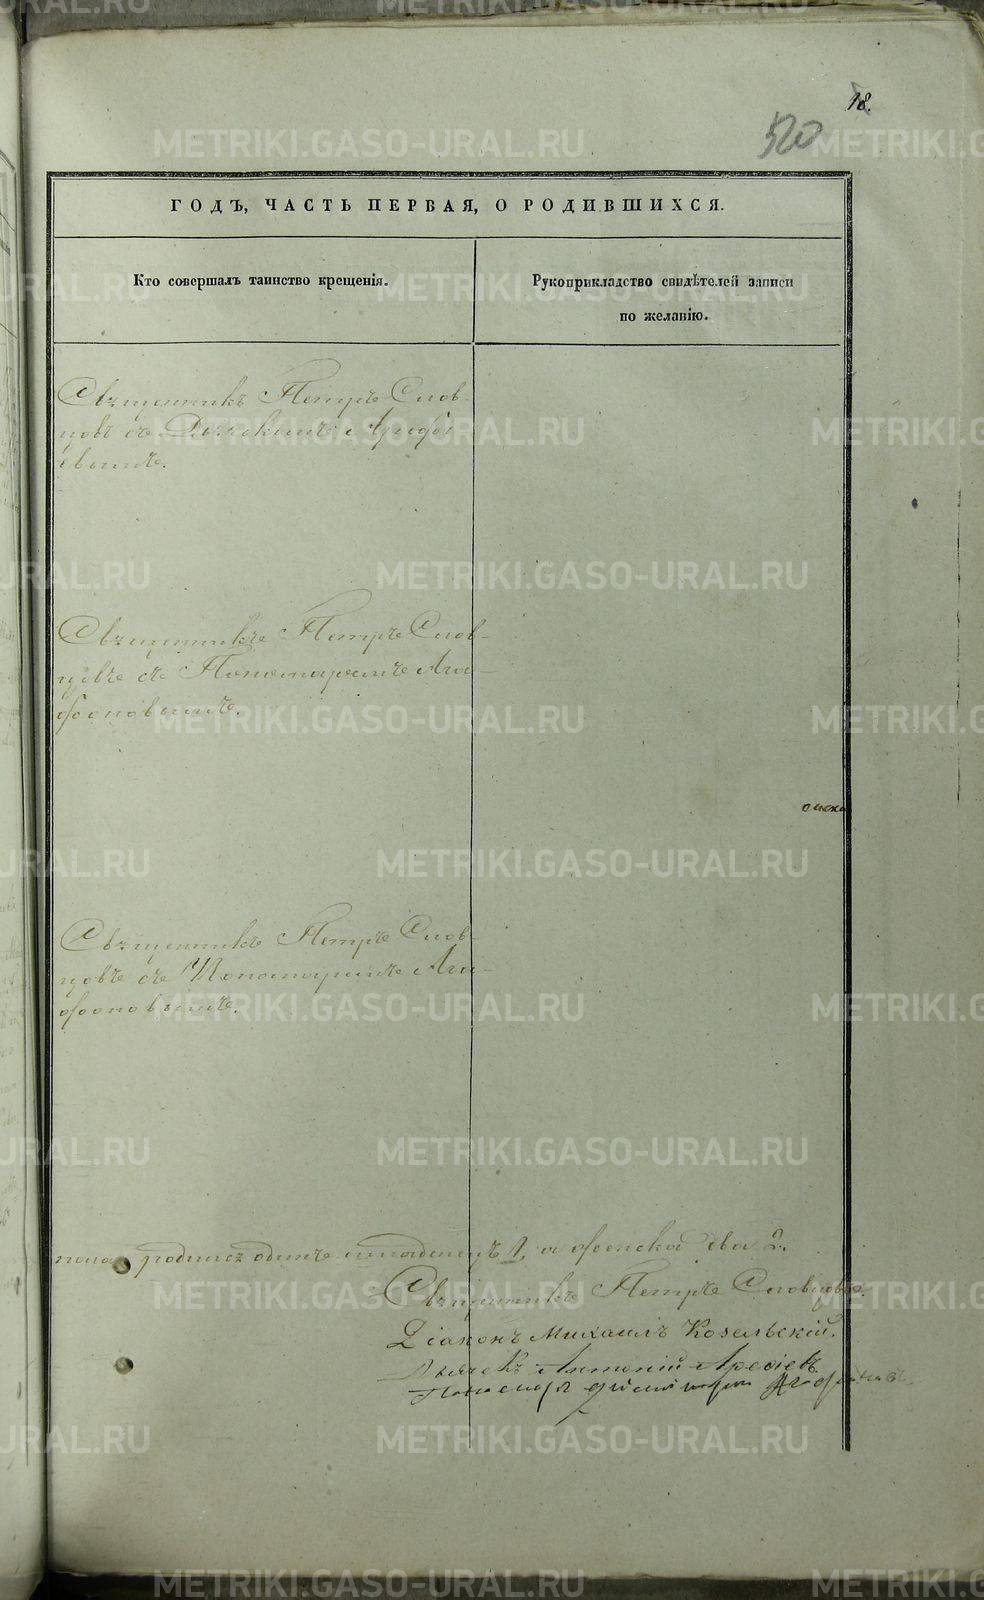 18.
520
ГОДЪ, ЧАСТЬ ПЕРВАЯ, О РОДИВШИХСЯ.
Кто совершалъ таинство крещенія.
Рукоприкладство свидѣтелей записи
по желанію.
Священникъ Петръ Слов-
цовъ съ Дьячкомъ Арефі
евымъ.
Священникъ Петръ Слов-
цовъ съ Пономаремъ Ага-
фоновымъ.
Священникъ Петръ Слов-
цовъ съ Пономаремъ Ага-
фоновымъ.
пола родился одинъ младенецъ 1, а женска два 2.
Священникъ Петръ Словцовъ.
Діаконъ Михаилъ Козельскій.
Дьячекъ Антоній Арефіевъ
Пономарь Агафоновъ
METRIKI.GASO-URAL.RU